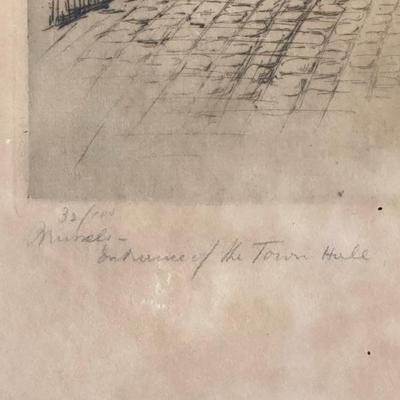 32/100
Brussels -
Entrance of the Town Hall